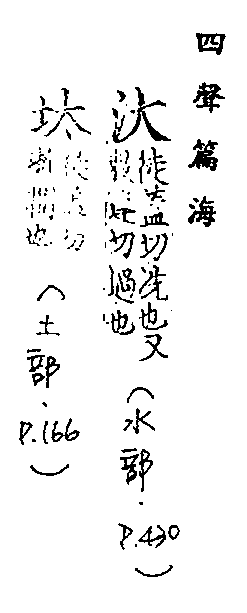 四聲篇海
汏
徒盖切洗也又
切過也
(水部.P.430)
徒切
也
(土部.P.166)